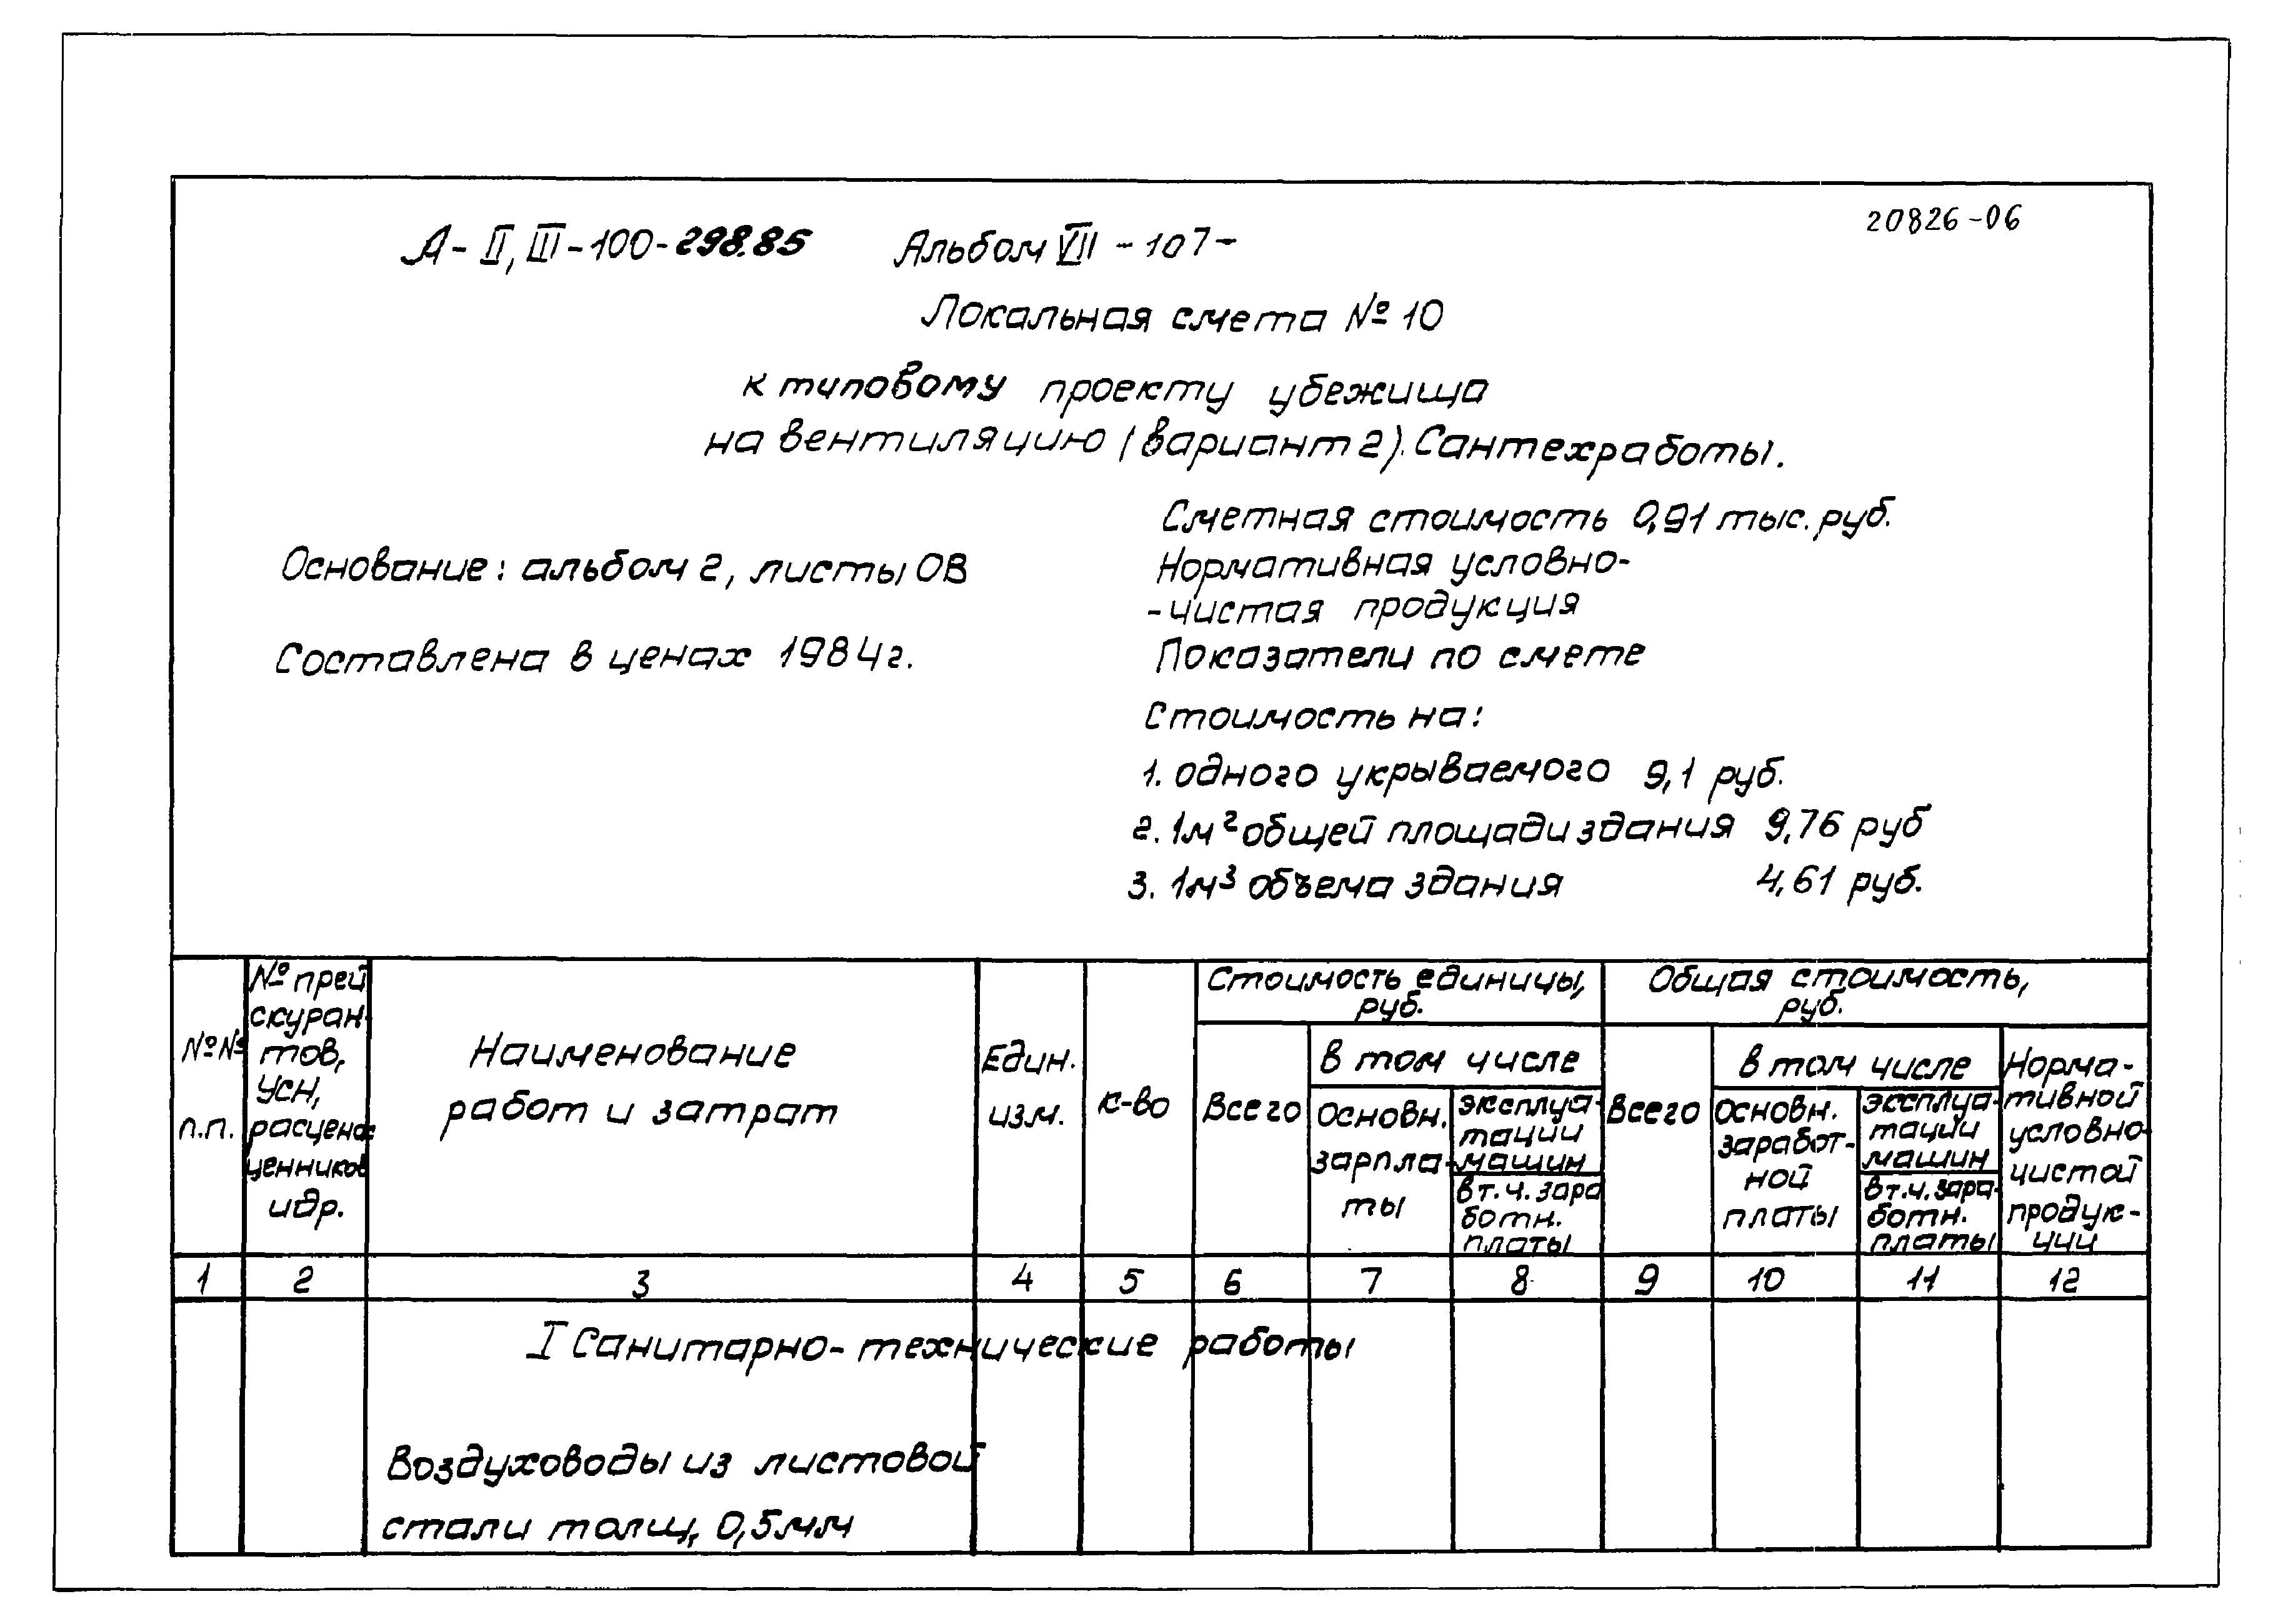 20826-06
А-II, III-100-298.85 Альбом VII -107-
Локальная смета № 10
к типовому проекту убежища
на вентиляцию (вариант 2). Сантехработы.
Основание: альбом 2, листы ОВ
Составлена в ценах 1984г.
Сметная стоимость 0,91 тыс. руб.
Нормативная условно-
-чистая продукция
Показатели по смете
Стоимость на:
1. одного укрываемого 9,1 руб.
2. 1м² общей площади здания 9,76 руб
3. 1м³ объема здания 4,61 руб.
№№
п.п.
№ прей
скуран-
тов,
УСН,
расцено-
ценников
и др.
Наименование
работ и затрат
Един.
изм.
к-во
Стоимость единицы,
руб.
Всего
в том числе
основн.
зарпла-
ты
эксплуа-
тации
машин
в т.ч. зара
ботн.
платы
Общая стоимость,
руб.
Всего
в том числе
основн.
заработ-
ной
платы
эксплуа-
тации
машин
в т.ч. зара-
ботн.
платы
Норма-
тивной
условно-
чистой
продук-
ции
1 2 3 4 5 6 7 8 9 10 11 12
I Санитарно-технические работы
Воздуховоды из листовой
стали толщ, 0,5мм